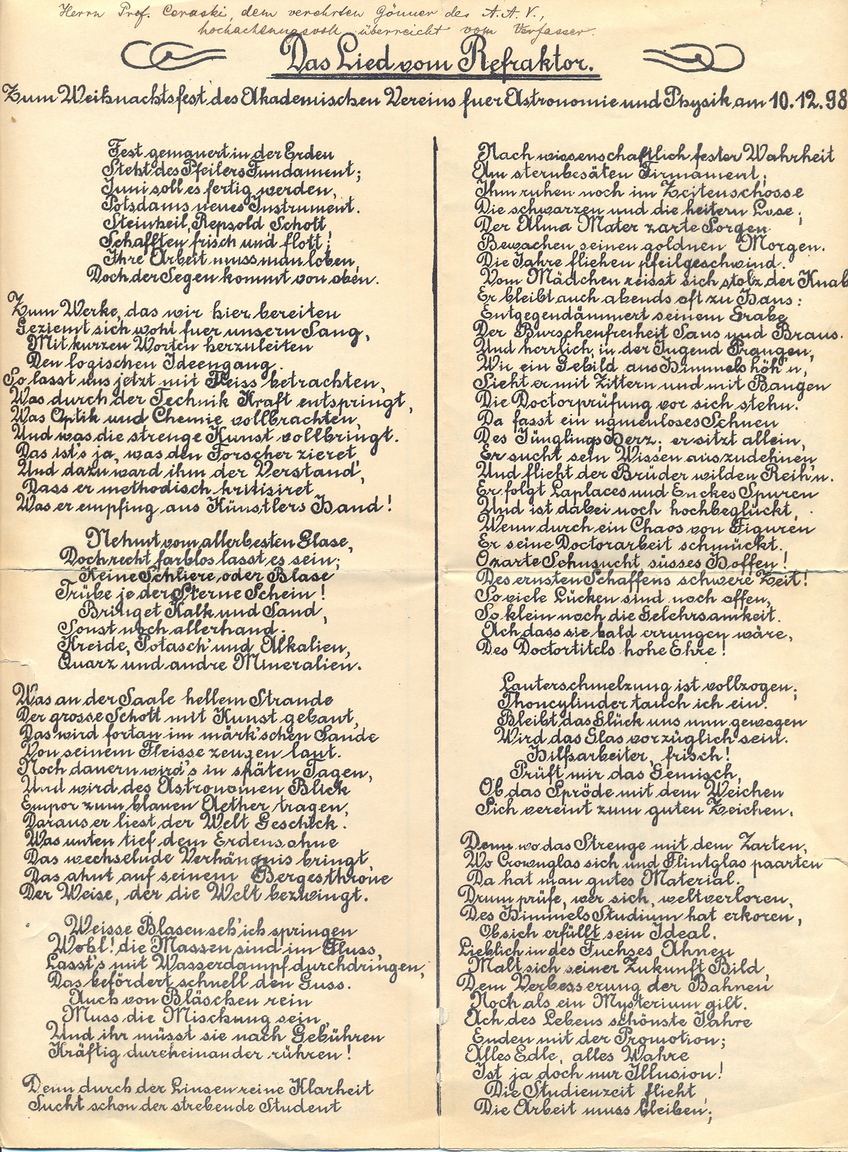 Herrn Prof. Ceraski, dem verehrten Gönner des A. A. V.,
hochachtungsvoll überreicht vom Verfasser.
Das Lied vom Refraktor.
Zum Weihnachtsfest des Akademischen Vereins fuer Astronomie und Physik am 10.12.98
Fest gemauert in der Erden
Steht des Pfeilers Fundament;
Juni soll es fertig werden,
Potsdams neues Instrument.
Steinheil, Repsold Schott
Schafften frisch und flott;
Ihre Arbeit muss man loben
Doch der Segen kommt von oben.
Zum Werke, das wir hier bereiten
Geziemt sich wohl fuer unsern Sang,
Mit kurzen Worten herzuleiten
Den logischen Ideengang.
So lasst uns jetzt mit Fleiss betrachten,
Was durch der Technik Kraft entspringt,
Was Optik und Chemie vollbrachten,
Und was die strenge Kunst vollbringt.
Das ist's ja, was den Forscher zieret
Und dazu ward ihm der Verstand,
Dass er methodisch kritisiret
Was er empfing aus Künstlers Hand!
Nehmt vom allerbesten Glase,
Doch recht farblos lasst es sein;
Keine Schliere oder Blase
Trübe je der Sterne Schein!
Bringet Kalk und Sand,
Sonst noch allerhand:
Kreide, Potasch' und Alkalien,
Quarz und andre Mineralien.
Was an der Saale hellem Strande
Der grosse Schott mit Kunst gebaut,
Das wird fortan im märk'schen Sande
Von seinem Fleisse zeugen laut.
Noch dauern wird's in späten Tagen,
Und wird des Astronomen Blick
Empor zum blauen Aether tragen,
Daraus er liest der Welt Geschick.
Was unten tief dem Erdensohne
Das wechselnde Verhängnis bringt
Das ahnt auf seinem Bergesthrone
Der Weise, der die Welt bezwingt.
Weisse Blasen seh' ich springen
Wohl! die Massen sind im Fluss,
Lasst's mit Wasserdampf durchdringen,
Das befördert schnell den Guss.
Auch von Bläschen rein
Muss die Mischung sein,
Und ihr müsst sie nach Gebühren
Kräftig durcheinander rühren!
Denn durch der Linsen reine Klarheit
Sucht schon der strebende Student
Nach wissenschaftlich fester Wahrheit
Am sternbesäten Firmament;
Ihm ruhen noch im Zeitenschosse
Die schwarzen und die heitern Lose;
Der Alma Mater zarte Sorgen
Bewachen seinen goldnen Morgen.
Die Jahre fliehen pfeilgeschwind.
Vom Mädchen reisst sich stolz der Knab
Er bleibt auch abends oft zu Haus:
Entgegendämmert seinem Grabe
Der Burschenfreiheit Saus und Braus.
Und herrlich in der Jugend Prangen,
Wie ein Gebild aus Himmelshöh'n,
Sieht er mit Zittern und mit Bangen
Die Doctorprüfung vor sich stehn.
Da fasst ein namenloses Sehnen
Des Jünglings Herz; er sitzt allein,
Er sucht sein Wissen auszudehnen
Und flieht der Brüder wilden Reih'n.
Er folgt Laplaces und Enckes Spuren
Und ist dabei noch hochbeglückt,
Wenn durch ein Chaos von Figuren
Er seine Doctorarbeit schmückt.
O zarte Sehnsucht, süsses Hoffen!
Des ernsten Schaffens schwere Zeit!
So viele Lücken sind noch offen,
So klein noch die Gelehrsamkeit.
Ach dass sie bald errungen wäre,
Des Doctortitels hohe Ehre!
Lauterschmelzung ist vollzogen;
Thoncylinder tauch ich ein.
Bleibt das Glück uns nun gewogen
Wird das Glas vorzüglich sein.
Hilfsarbeiter, frisch!
Prüft mir das Gemisch,
Ob das Spröde mit dem Weichen
Sich vereint zum guten Zeichen.
Denn wo das Strenge mit dem Zarten,
Wo Crownglas sich und Flintglas paarten
Da hat man gutes Material.
Drum prüfe, wer sich, weltverloren,
Des Himmels Studium hat erkoren,
Ob sich erfüllt sein Ideal.
Lieblich in des Fuchses Ahnen
Malt sich seiner Zukunft Bild,
Dem Verbesserung der Bahnen
Noch als ein Mysterium gilt.
Ach des Lebens schönste Jahre
Enden mit der Promotion;
Alles Edle, alles Wahre
Ist ja doch nur Illusion!
Die Studienzeit flieht
Die Arbeit muss bleiben;